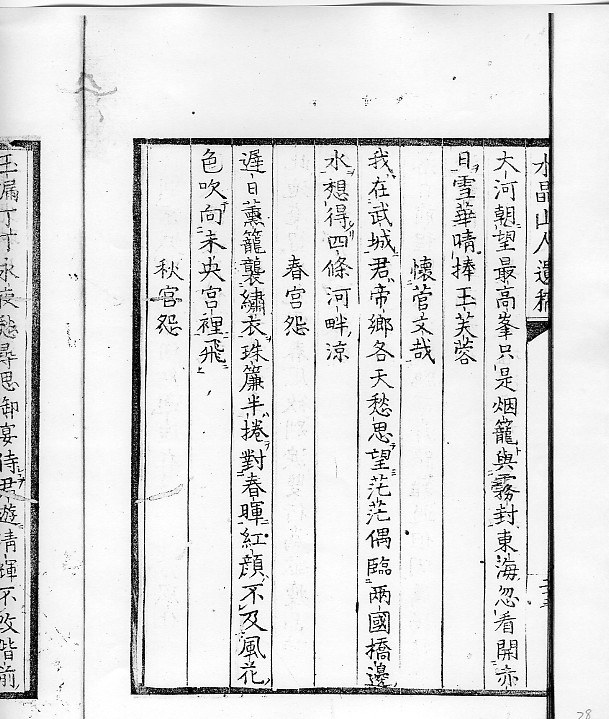 水晶山人遺稿
大河朝望最高峯只是烟籠與霧封東海忽看開赤
日雪華晴捧玉芙蓉
懷菅文哉
我在武城君帝鄉各天愁思望茫茫偶臨兩國橋邊
水想得四條河畔涼
春宮怨
遲日薰籠襲繡衣珠簾半捲對春暉紅顏不及風花
色吹向未央宮裡飛
秋宮怨
玉漏丁丁永夜愁尋思御宴侍君遊清輝不改階前